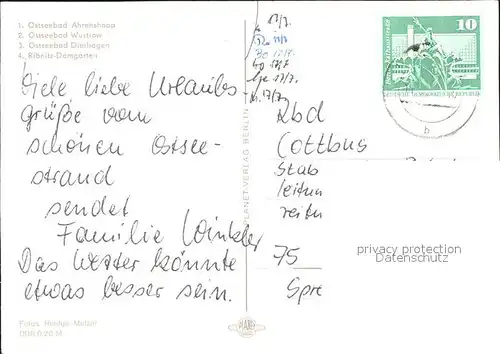 1. Ostseebad Ahrenshoop
2. Ostseebad Wustrow
3. Ostseebad Dierhagen
4. Ribnitz-Damgarten
Viele liebe Urlaubs-
grüße vom
schönen Ostsee-
strand
sendet
Familie Winkler
Das Wetter könnte
etwas besser sein.
Fotos: Metzer
DDR 0,20 M
PLANET-VERLAG BERLIN
PLANET
17/7.
17/7
17/7
17/7.
17/7
10
Rbd
Cottbus
Stab
leitun
reitu
75
Spre
privacy protection
Datenschutz
b